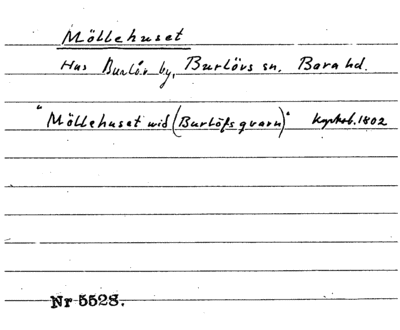 Möllehuset
Hus Burlöv by, Burlövs sn. Bara hd.
"Möllehuset wid (Burlöfs qvarn)" kyrkob. 1802
Nr 5528.